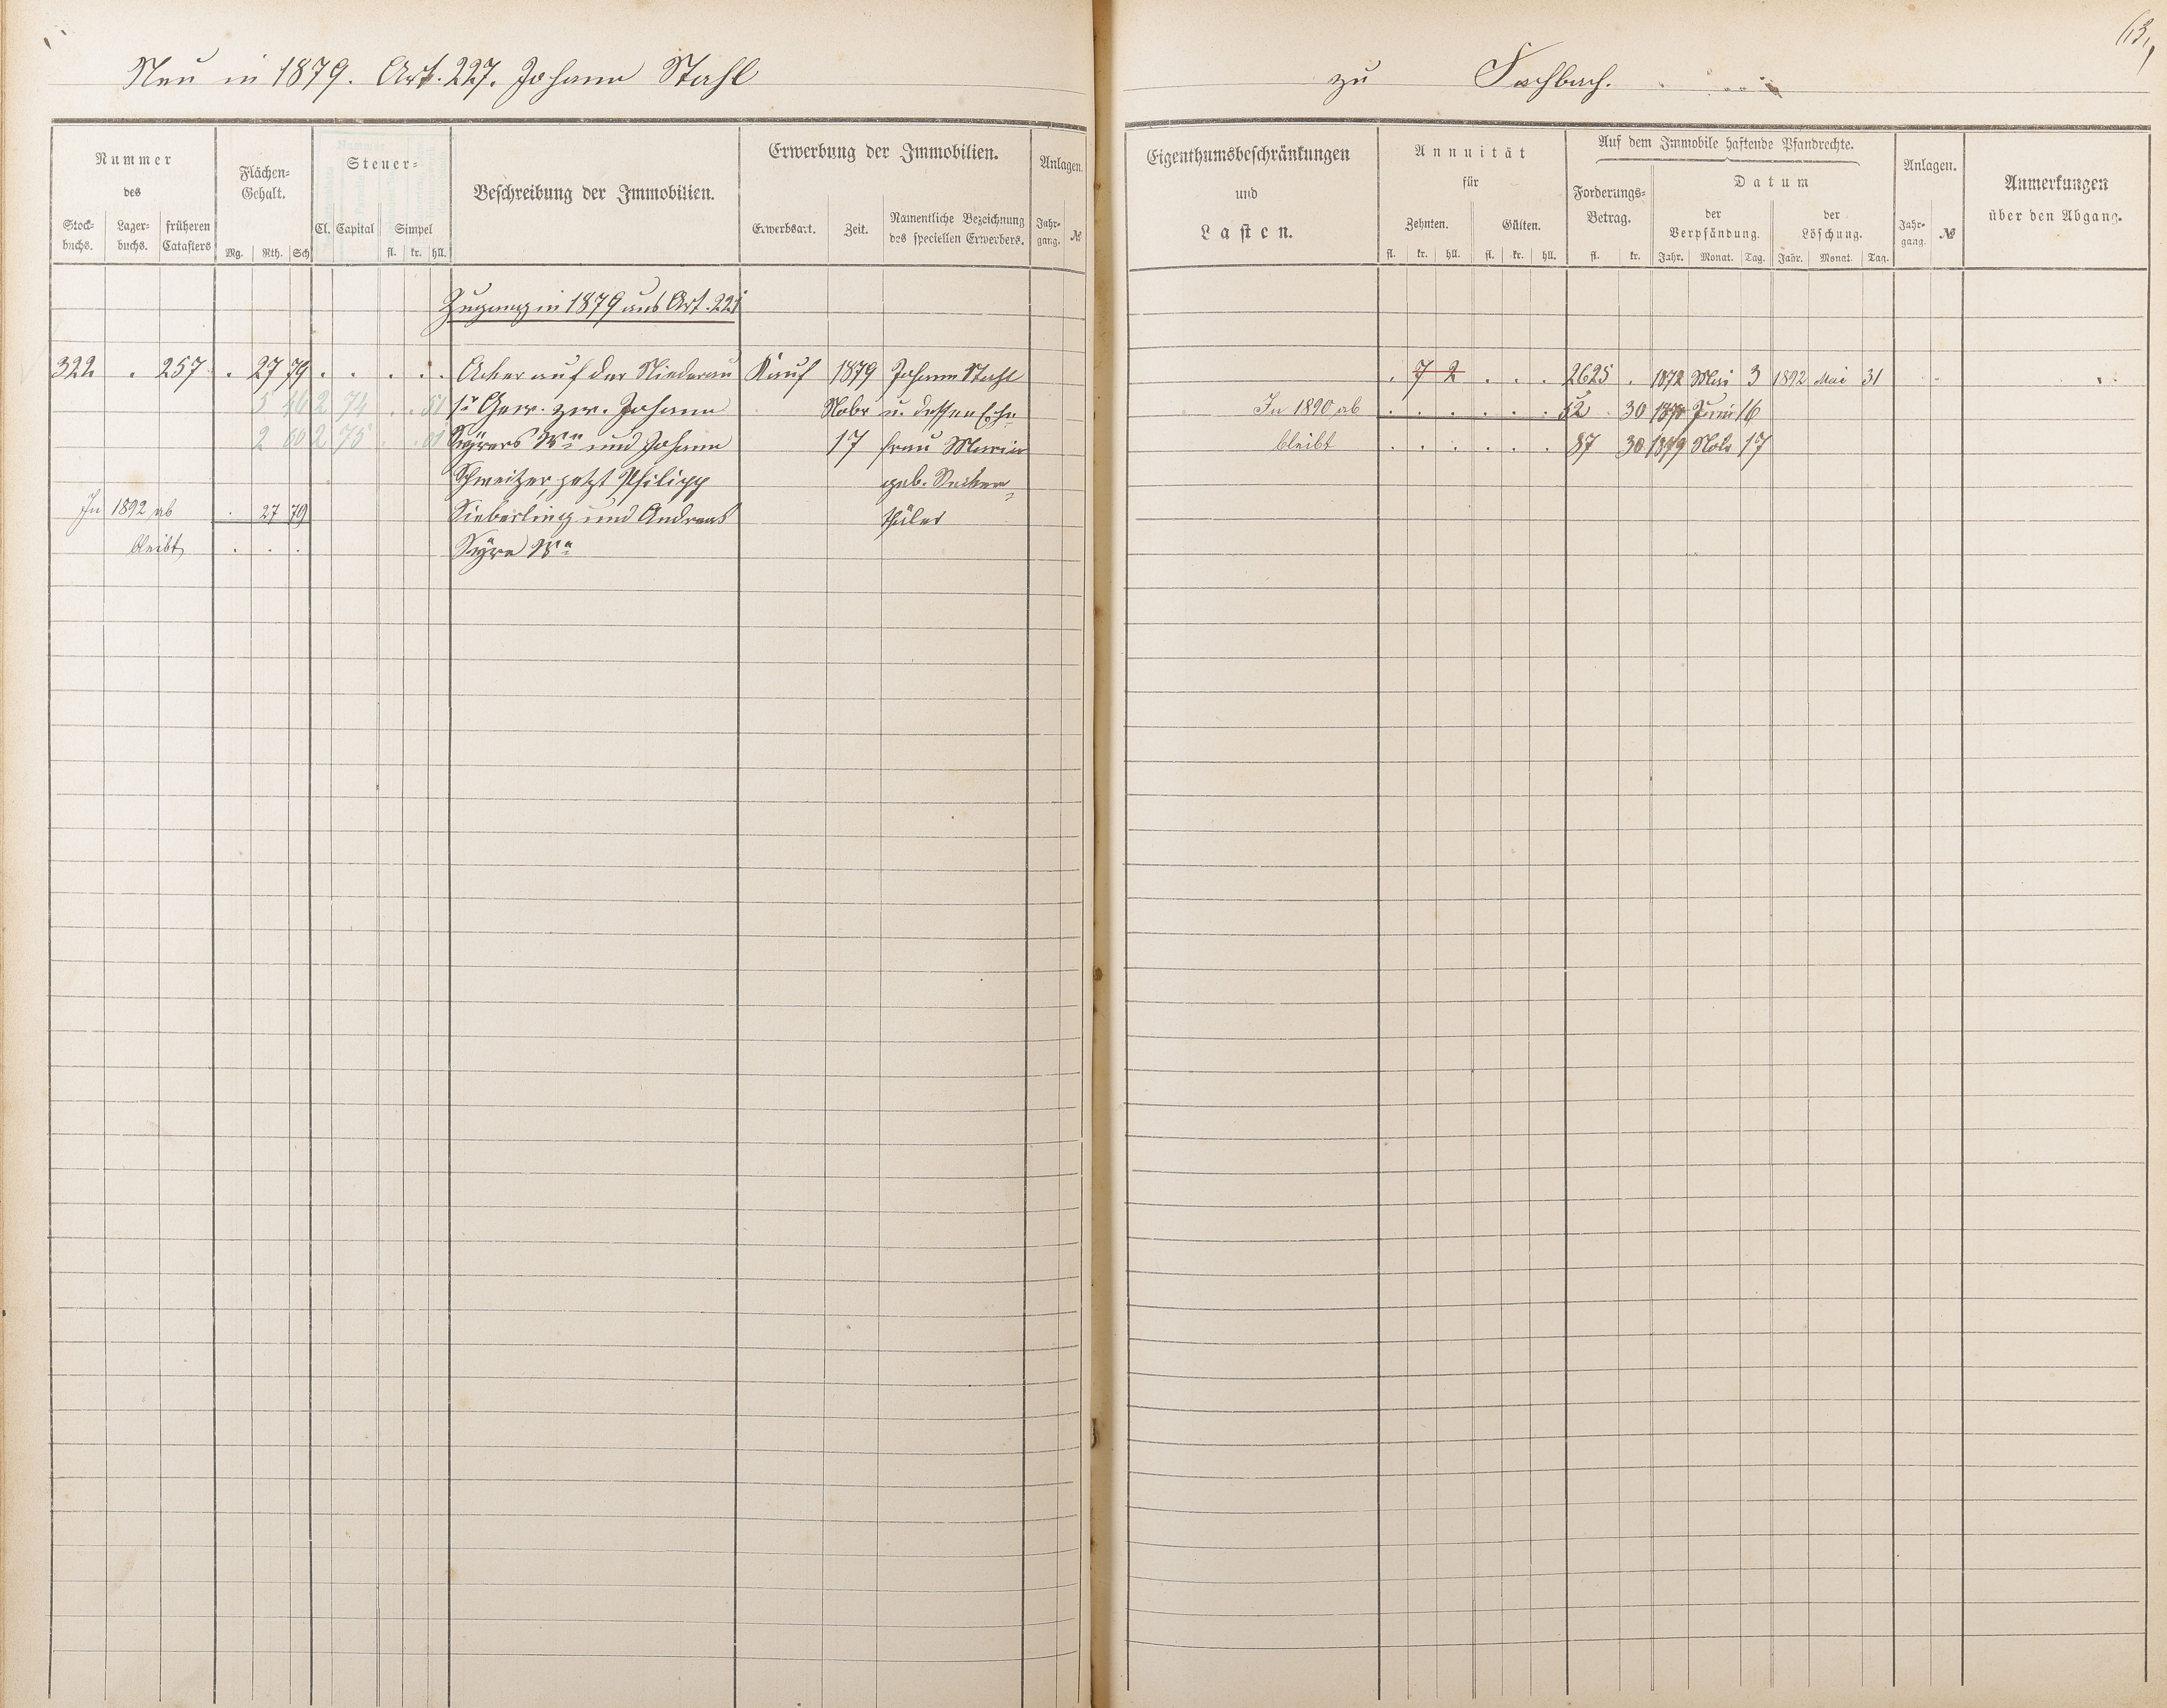 63.
Neu in 1879. Art. 227. Johann Stahl
zu Fachbach.
Nummer
des
Stock-
buchs.
Lager-
buchs.
früheren
Catasters
Flächen-
Gehalt.
Mg. Rth. Sch
Steuer-
Cl. Capital Simpel
fl. kr. hll.
Beschreibung der Immobilien.
Erwerbung der Immobilien.
Erwerbsart. Zeit.
Namentliche Bezeichnung
des speciellen Erwerbers.
Anlagen.
Jahr-
gang. №
Eigenthumsbeschränkungen
und
Lasten.
Annuität
für
Zehnten. Gülten.
fl. kr. hll. fl. kr. hll.
Auf dem Immobile haftende Pfandrechte.
Forderungs-
Betrag.
fl. kr.
Datum
der
Verpfändung.
Jahr. Monat. Tag.
der
Löschung.
Jahr. Monat. Tag.
Anlagen.
Jahr-
gang. №
Anmerkungen
über den Abgang.
Zugang in 1879 aus Art. 221
322 . 257 . 27 79 . . . . . Acker auf der Niederau Kauf 1879 Johann Stahl . 7 2 . . . 2625 . 1872 Mai 3 1892 Mai 31
5 46 2 74 . . 51 1r Gew. zw. Johann Nobr u. dessen Ehe- In 1890 ab . . . . . . 52 30 Juni 16
2 60 2 75 . . 01 Wwe und Johann 17 frau Maria bleibt . . . . . . 87 30 1879 Nobr 17
Schweitzer, jetzt Philipp geb.
In 1892 ab . 27 79 Sieberling und Andreas
bleibt . . . Wwe